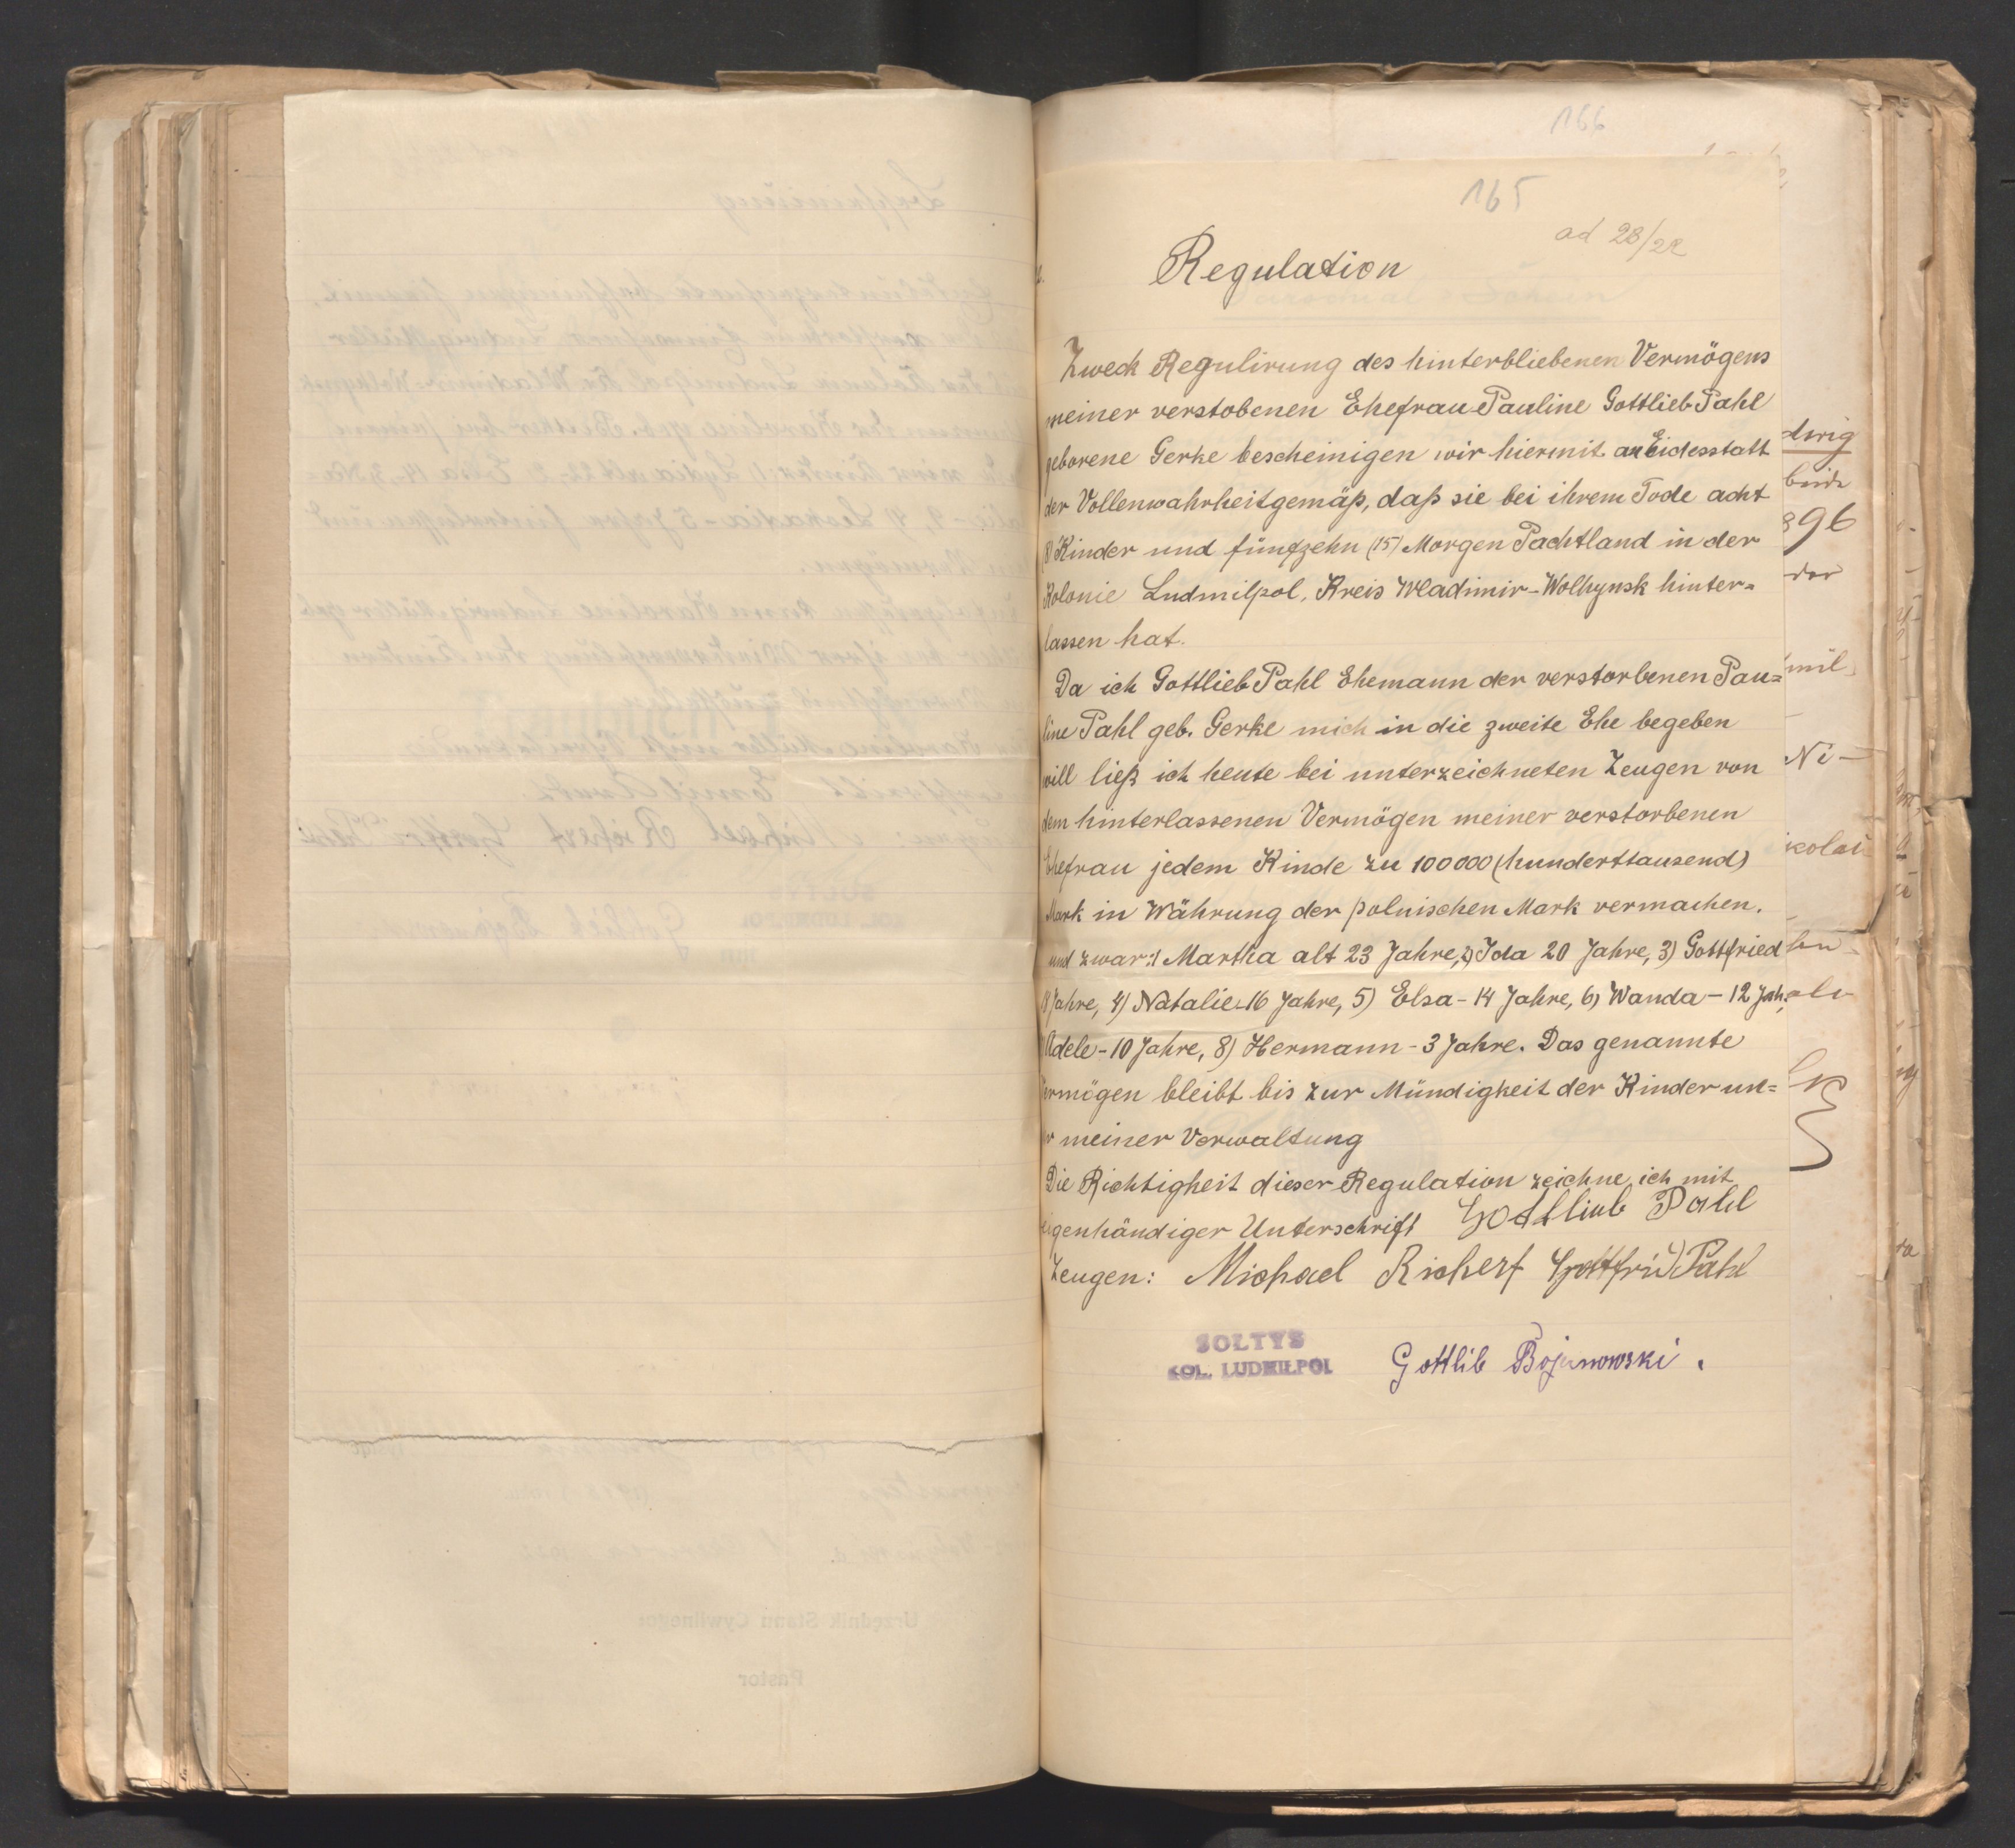 166
165
ad 28/22
Regulation
Zweck Regulirung des hinterbliebenen Vermögens
meiner verstobenen Ehefrau Pauline Gottlieb Pahl
geborene Gerke bescheinigen wir hiermit an Eidesstatt
der Vollenwahrheitgemäß, daß sie bei ihrem Tode acht
8) Kinder und fünfzehn (15) Morgen Pachtland in der
Kolonie Ludmilpol, Kreis Wladimir-Wolhynsk hinter=
lassen hat.
Da ich Gottlieb Pahl Ehemann der verstorbenen Pau=
line Pahl geb. Gerke mich in die zweite Ehe begeben
will ließ ich heute bei unterzeichneten Zeugen von
dem hinterlassenen Vermögen meiner verstorbenen
Ehefrau jedem Kinde zu 100000 (hunderttausend)
Mark in Währung der polnischen Mark vermachen.
und zwar: 1 Martha alt 23 Jahre, 2) Ida 20 Jahre, 3) Gottfried
18 Jahre, 4) Natalie-16 Jahre, 5) Elsa-14 Jahre, 6) Wanda-12 Jah.
Adele-10 Jahre, 8) Hermann-3 Jahre. Das genannte
Vermögen bleibt bis zur Mündigkeit der Kinder un=
r meiner Verwaltung
Die Richtigkeit dieser Regulation zeichne ich mit
eigenhändiger Unterschrift Gottlieb Pahl
Zeugen: Michael Richert Gottfried Pahl
SOŁTYS
KOL. LUDMIŁPOL
Gottlib Bojanowski.
dwig
beide
896
der
mil
Ni-
kolai